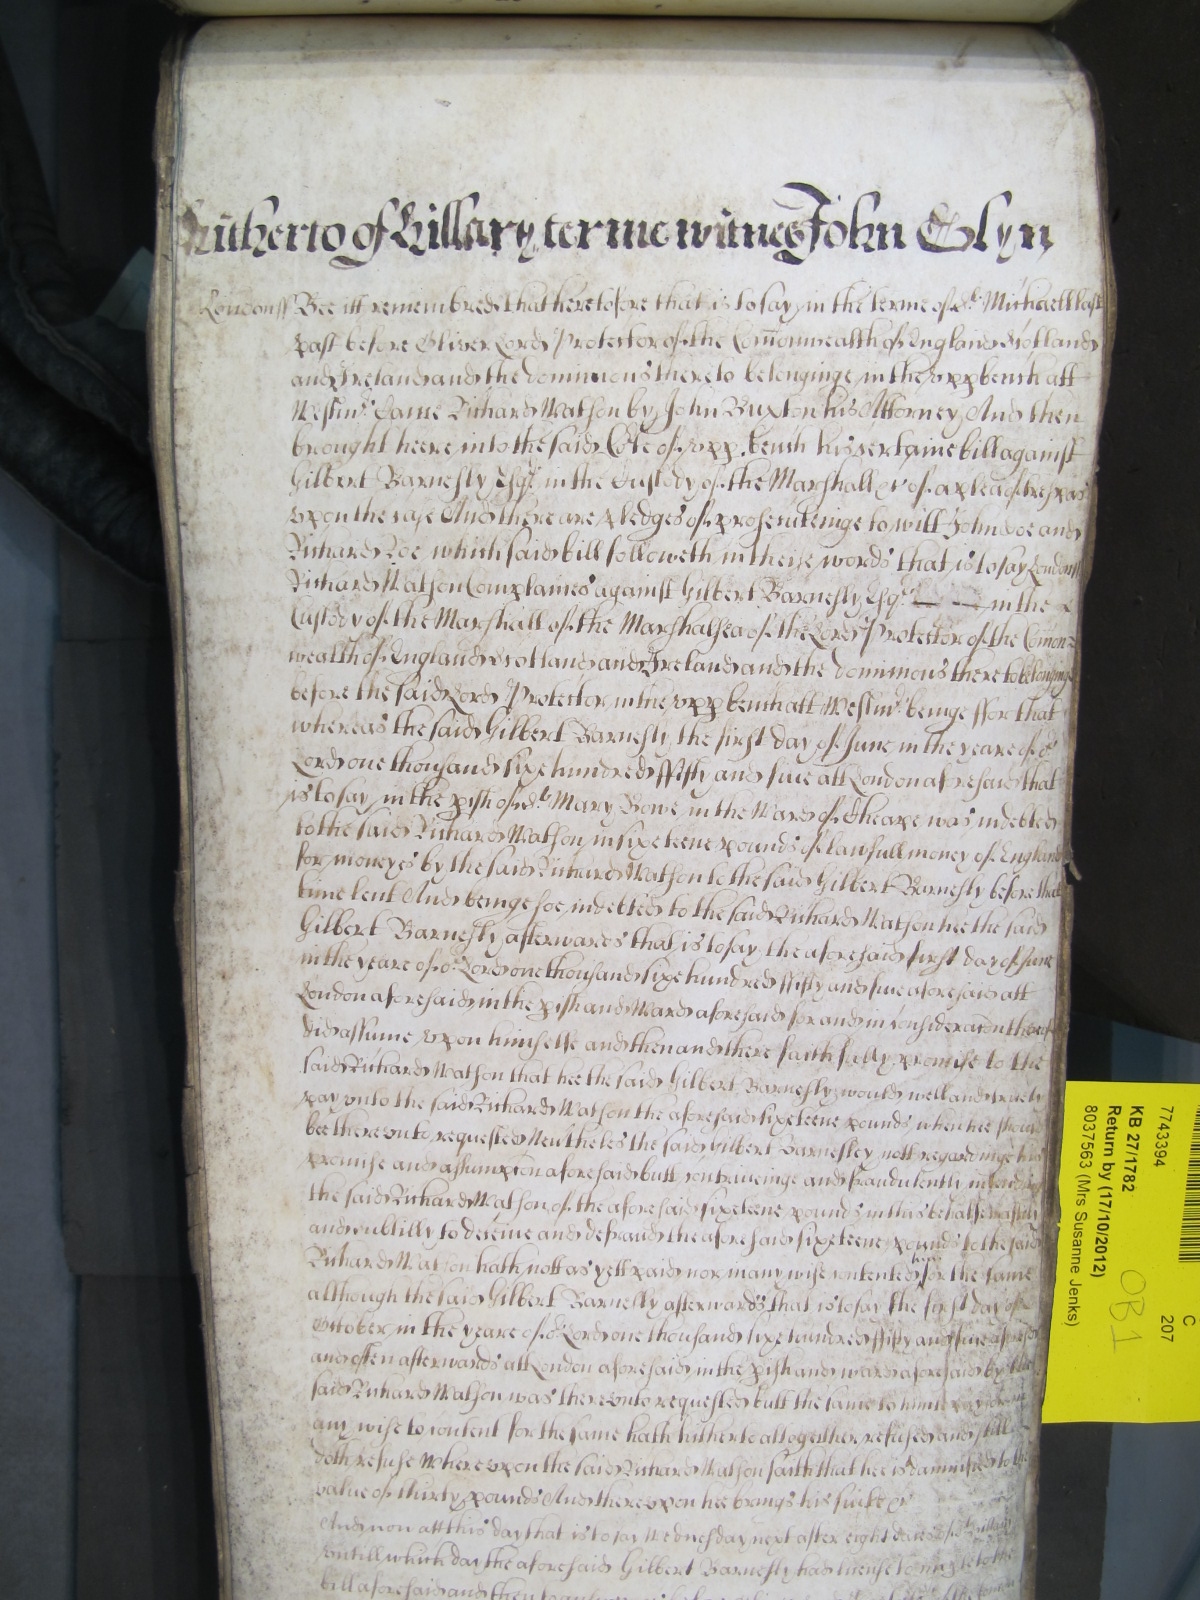 hitherto of Hillary terme witnes John Glyn
Londonss Bee itt remembred that heretofore that is to say in the terme of St Michaell last
past before Oliver Lord Protector of the Comonwealth of England Scotland
and Ireland and the dominions thereto belonginge in the upp bench att
Westmr Came Richard Watson by John Buxton his Attorney And then
brought heere into the said Cote of upp bench his certaine bill against
Gilbert Barnesly Esqr in the Custody of the Marshall &c of a plea of trespas
upon the case And there are pledges of prosecuteinge to witt John doe and
Richard Roe which said bill followeth in theise words that is to say Londonss
Richard Watson Complaines against Gilbert Barnesly Esqr in the
Custody of the Marshall of the Marshalsea of the Lord Protector of the Comon
wealth of England Scotland and Ireland and the dominions thereto belonginge
before the said Lord Protector in the upp bench att Westmr beinge ffor that
whereas the said Gilbert Barnesly the first day of June in the yeare of or
Lord one thousand sixe hundred ffifty and five att London aforesaid that
is to say in the pish of St Mary Bowe in the Ward of Cheape was indebted
to the said Richard Watson in sixeteene pounds of lawfull money of England
for moneyes by the said Richard Watson to the said Gilbert Barnesly before that
time lent And beinge soe indebted to the said Richard Watson hee the said
Gilbert Barnesly afterwards that is to say the aforesaid first day of June
in the yeare of or Lord one thousand sixe hundred ffifty and five aforesaid att
London aforesaid in the pish and Ward aforesaid for and in consideracon thereof
did assume upon himselfe and then and there faithfully promise to the
said Richard Watson that hee the said Gilbert Barnesly would well and truely
pay unto the said Richard Watson the aforesaid sixeteene pounds when hee should
bee thereunto requested Neutheles the said Gilbert Barnesley nott regardinge his
promise and assumpcon aforesaid butt contriveinge and fraudulently intendinge
the said Richard Watson of the aforesaid sixeteene pounds in this behalfe craftily
and subtilly to deceive and defraud the aforesaid sixeteene pounds to the said
Richard Watson hath nott as yett paid nor in any wise contented him for the same
although the said Gilbert Barnesly afterwards that is to say the first day of
October in the yeare of or Lord one thousand sixe hundred ffifty and five aforesd
and often afterwards att London aforesaid in the pish and ward aforesaid by the
said Richard Watson was thereunto requested butt the same to him to pay or in
any wise to content for the same hath hitherto altogether refused and still
doth refuse Whereupon the said Richard Watson saith that hee is damnified to the
value of thirty pounds And thereupon hee brings his suite &c
And now att this day that is to say Wednesday next after eight dayes of St Hillary
untill which day the aforesaid Gilbert Barnesly had licence to imparle to the
bill aforesaid and then
7743394
C
207
KB 27/1782
Return by (17/10/2012)
8037563 (Mrs Susanne Jenks)
OB1